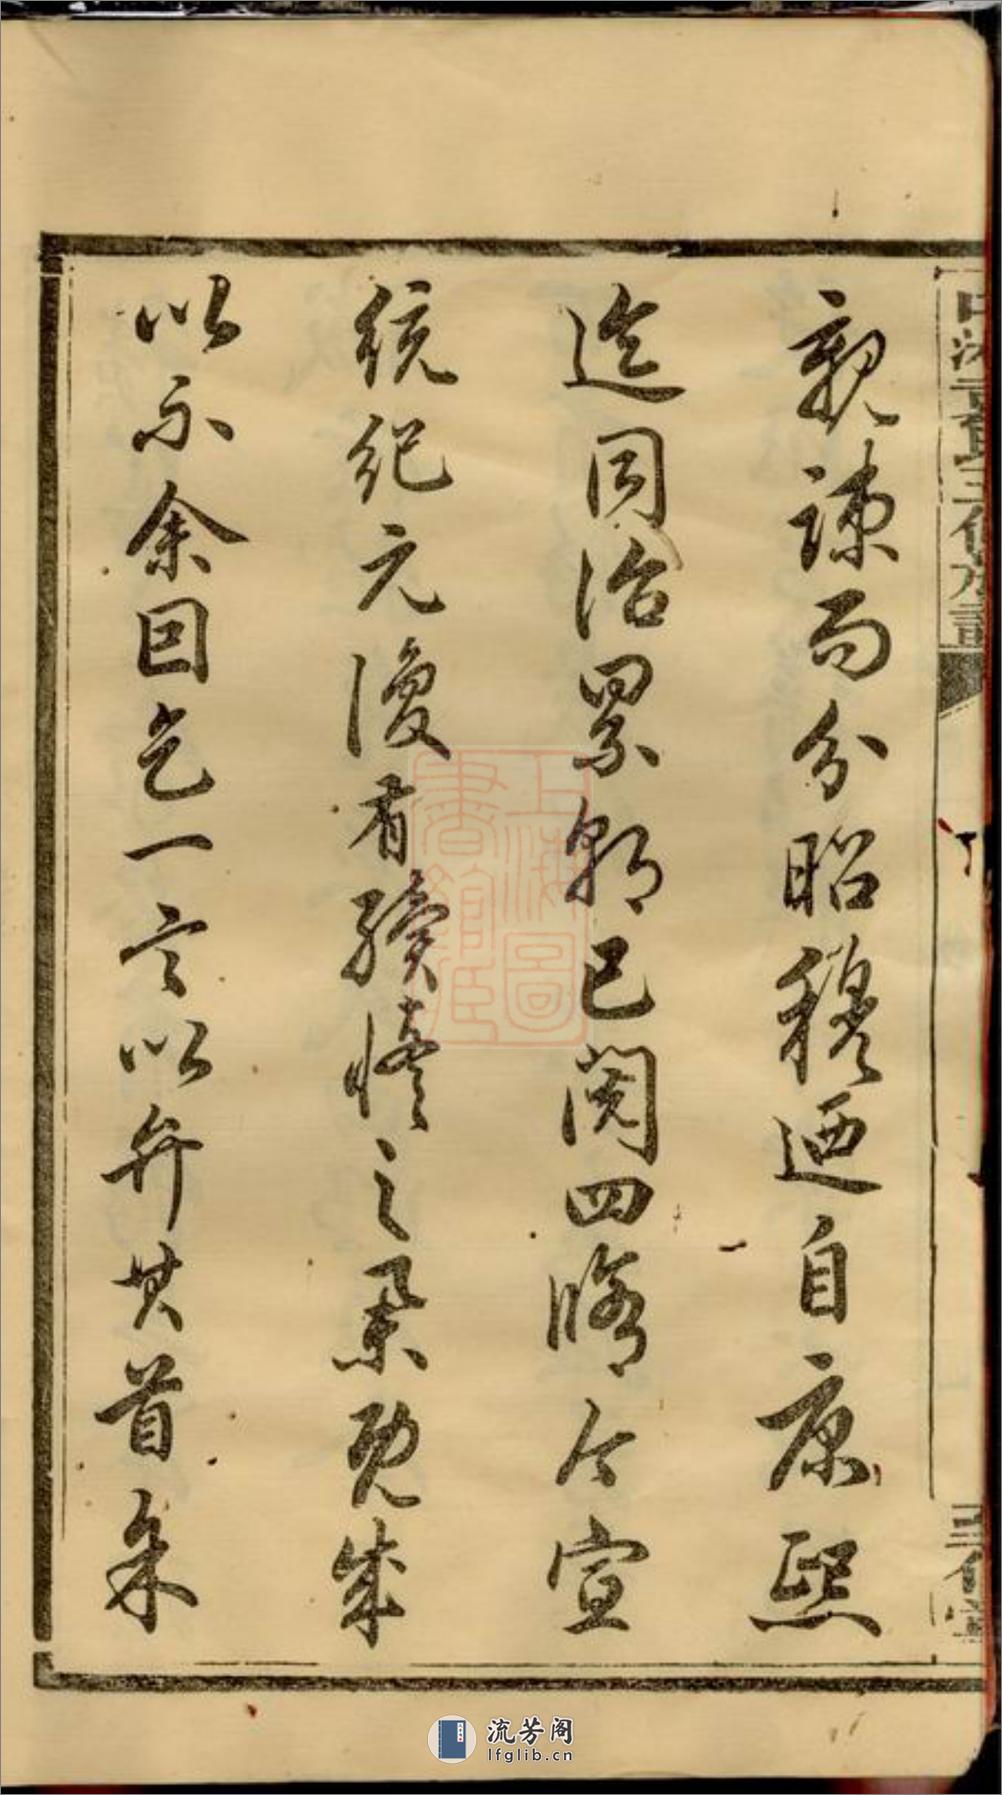 親疎而分昭穆迺自康熙
迄同治累朝已閱四脩今宣
統紀元復有續之既成
以示余囙乞一言以弁其首余
上海圖
書館藏
流芳阁
lfglib.cn